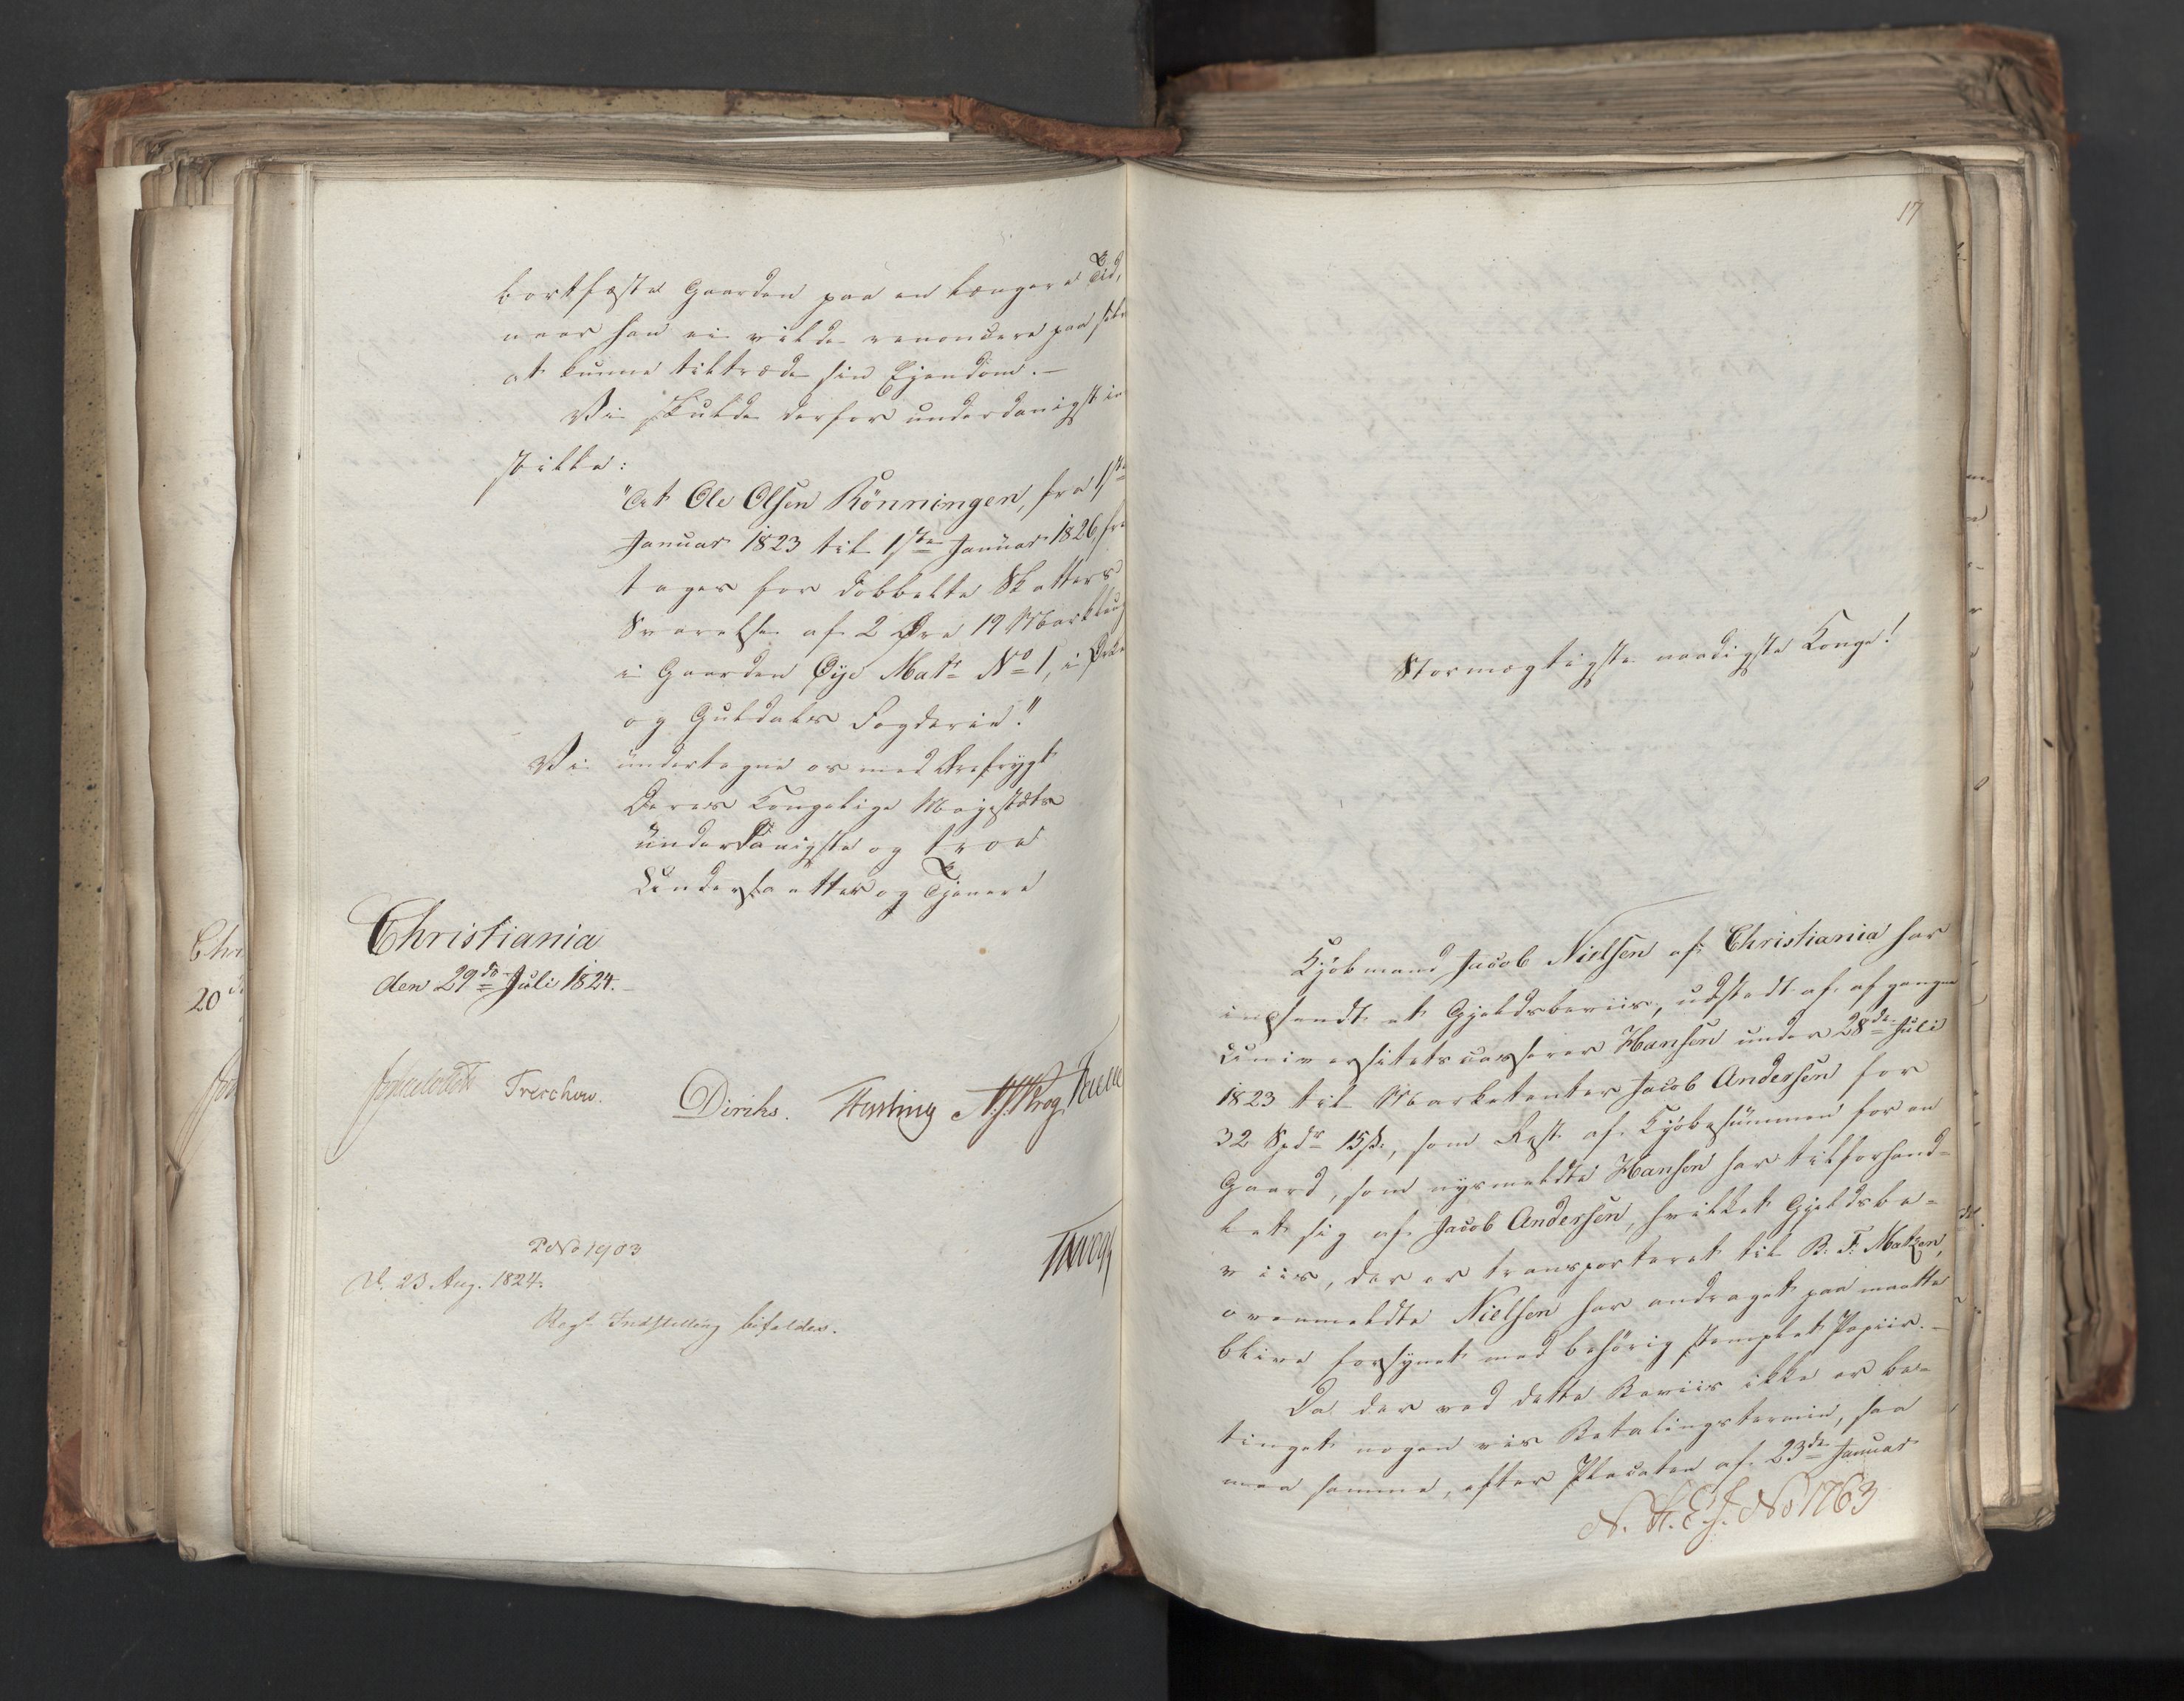 bortfæste Gaarden paa en længere Tid,
naar han ei vilde renoncere paa selv
at kunne tiltræde sin Ejendom. –
Vi skulde derfor underdanigst ind
stille:
"At Ole Olsen Rönningen, fra 1ste
Januar 1823 til 1ste Januar 1826, fri
tages for dobbelte Skatters
Svarelse af 2 Øre 19 Marklaug
i Gaarden Øye Matr No 1, i
og Guldals Fogderie."
Vi undertegne os med Ærefrygt
Deres Kongelige Majestæts
underdanigste og troe
Undersaatter og Tjenere
Christiania
den 29de Juli 1824. –
Treschow. Diriks. Hesting Krog
P No 1903
d. 23. Aug. 1824.
Regs Indstilling bifaldes.
17
Stormægtigste naadigste Konge!
Kjöbmand Jacob Nielsen af Christiania har
indsendt et Gjeldsbeviis, udstedt af afgangne
Universitetscasserer Hansen under 28de Juli
1823 til Marketenter Jacob Andersen for
32 Spdr 15 ß., som Rest af Kjöbesummen for en
Gaard, som nysmeldte Hansen har tilforhand-
let sig af Jacob Andersen, hvilket Gjeldsbe-
viis, der er transporteret til B. F. Matzen,
ovenmeldte Nielsen har andraget paa maatte
blive forsynet med behörig stemplet Papiir. –
Da der ved dette Beviis ikke er be-
tinget nogen vis Betalingstermin, saa
maa samme, efter Placaten af 23de Januar
No 1763
Chri
20